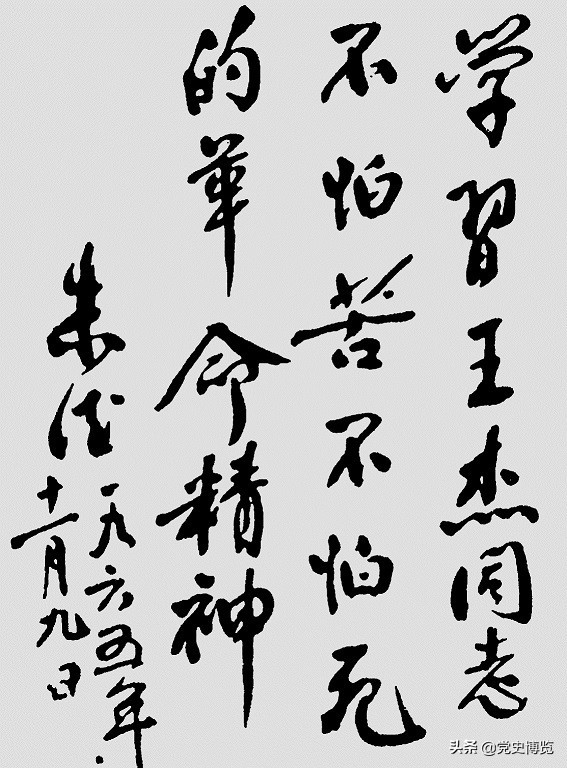 学習王杰同志
不怕苦不怕死
的革命精神
朱德
一九六五年
十一月九日
头条 @党史博览